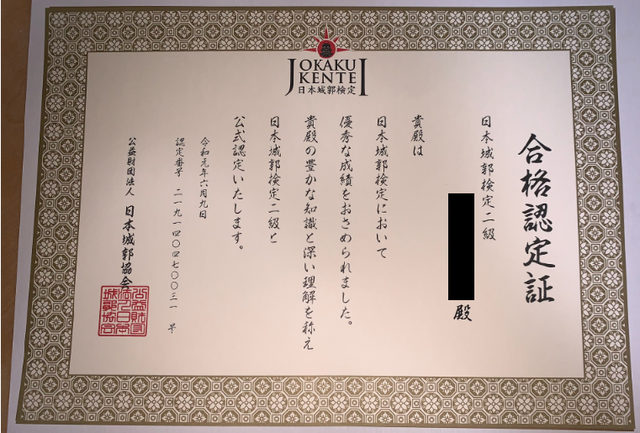 JOKAKU
KENTEI
日本城郭検定
合格認定証
日本城郭検定二級
殿
貴殿は
日本城郭検定において
優秀な成績をおさめられました。
貴殿の豊かな知識と深い理解を称え
日本城郭検定二級と
公式認定いたします。
令和元年六月九日
認定番号 二一九一四〇四七〇〇三一 号
公益財団法人 日本城郭協会
公益財団法人日本城郭協会